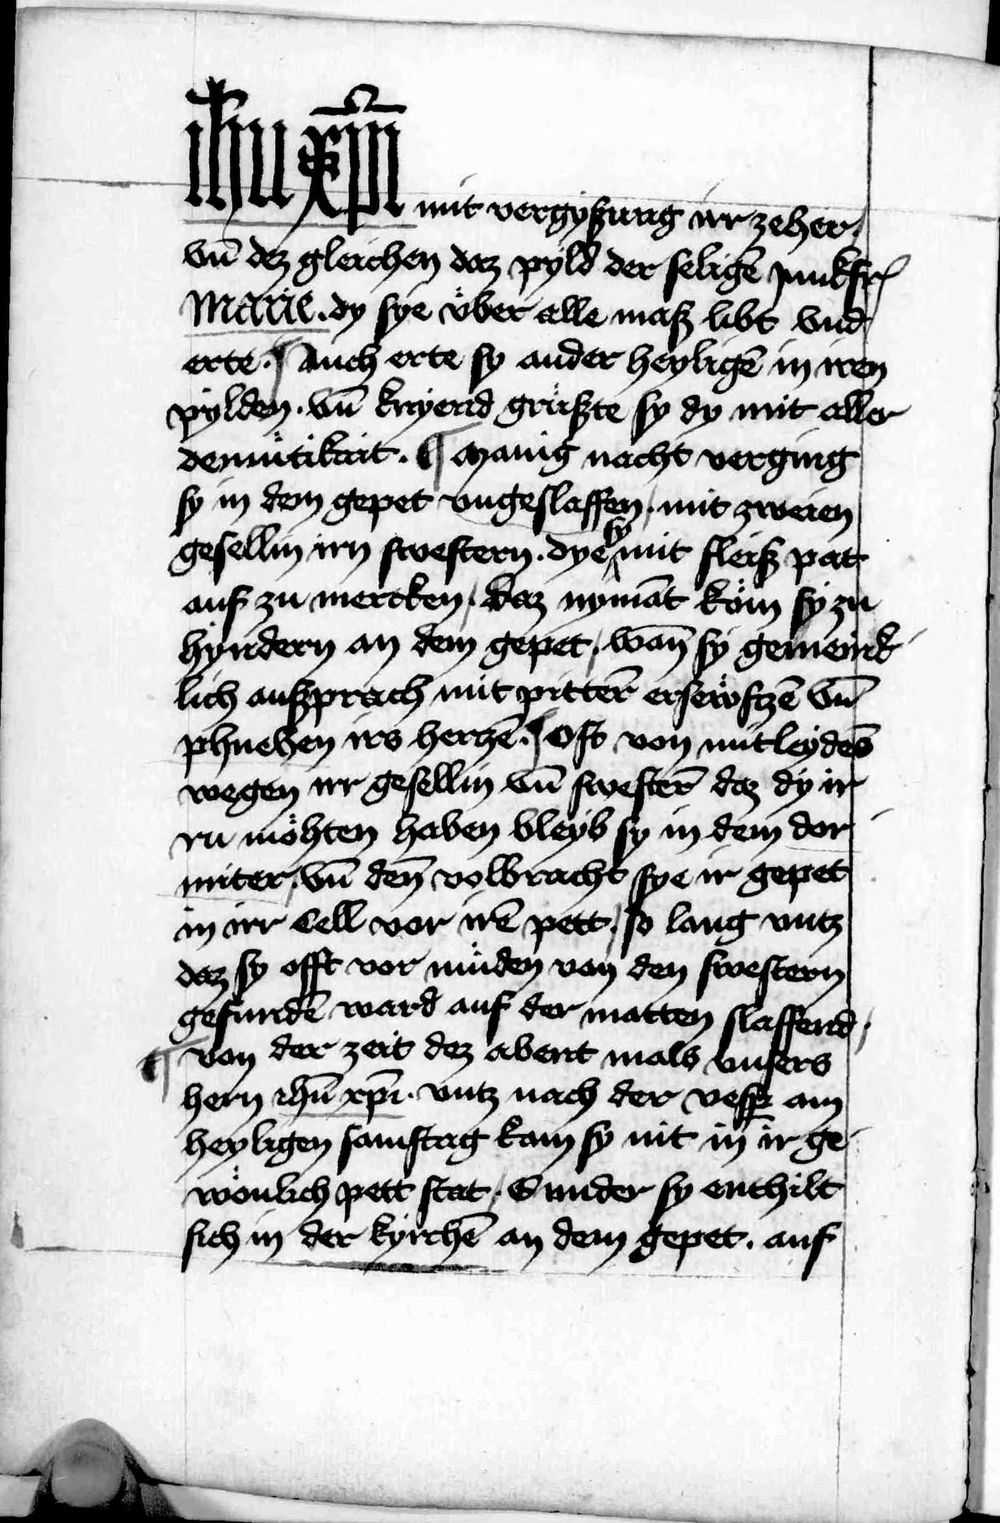 ihu xp̄i mit vergyßung irr zeher.
vn̄ dez gleichen daz pyld der seligē junkfr
Marie. dy sye über alle maß libt vnd
erte. ¶ Auch erte sy ander heyligē in iren
pylden. vn̄ knyend grüßte sy dy mit aller
demütikait. ¶ Manig nacht verging
sy in dem gepet vngeslaffen, mit zweien
gesellin irn swestern. dye sy mit fleiß pat
auf zu mercken, daz nymāt köm sy zu
hyndern an dem gepet, wan̄ sy gemeink
lich außprach mit pitterē ersewftzē vn̄
phnehen irs herczē. ¶ Oft von mitleydēs
wegen irr gesellin vn̄ swesterē daz dy ir
ru möhten haben bleyb sy in dem dor
miter, vn̄ den̄ volbracht sye ir gepet
in irr Cell vor irē pett, so lang vntz
daz sy offt vor müden von den swestern
gefundē ward auf der matten slaffend,
¶ von der zeit dez abent mals vnsers
hern ihū xp̄i. vntz nach der vesp am
heyligen samstag kam sy nit in ir ge
wönlich pett stat, Sunder sy enthilt
sich in der kyrchē an dem gepet. auf